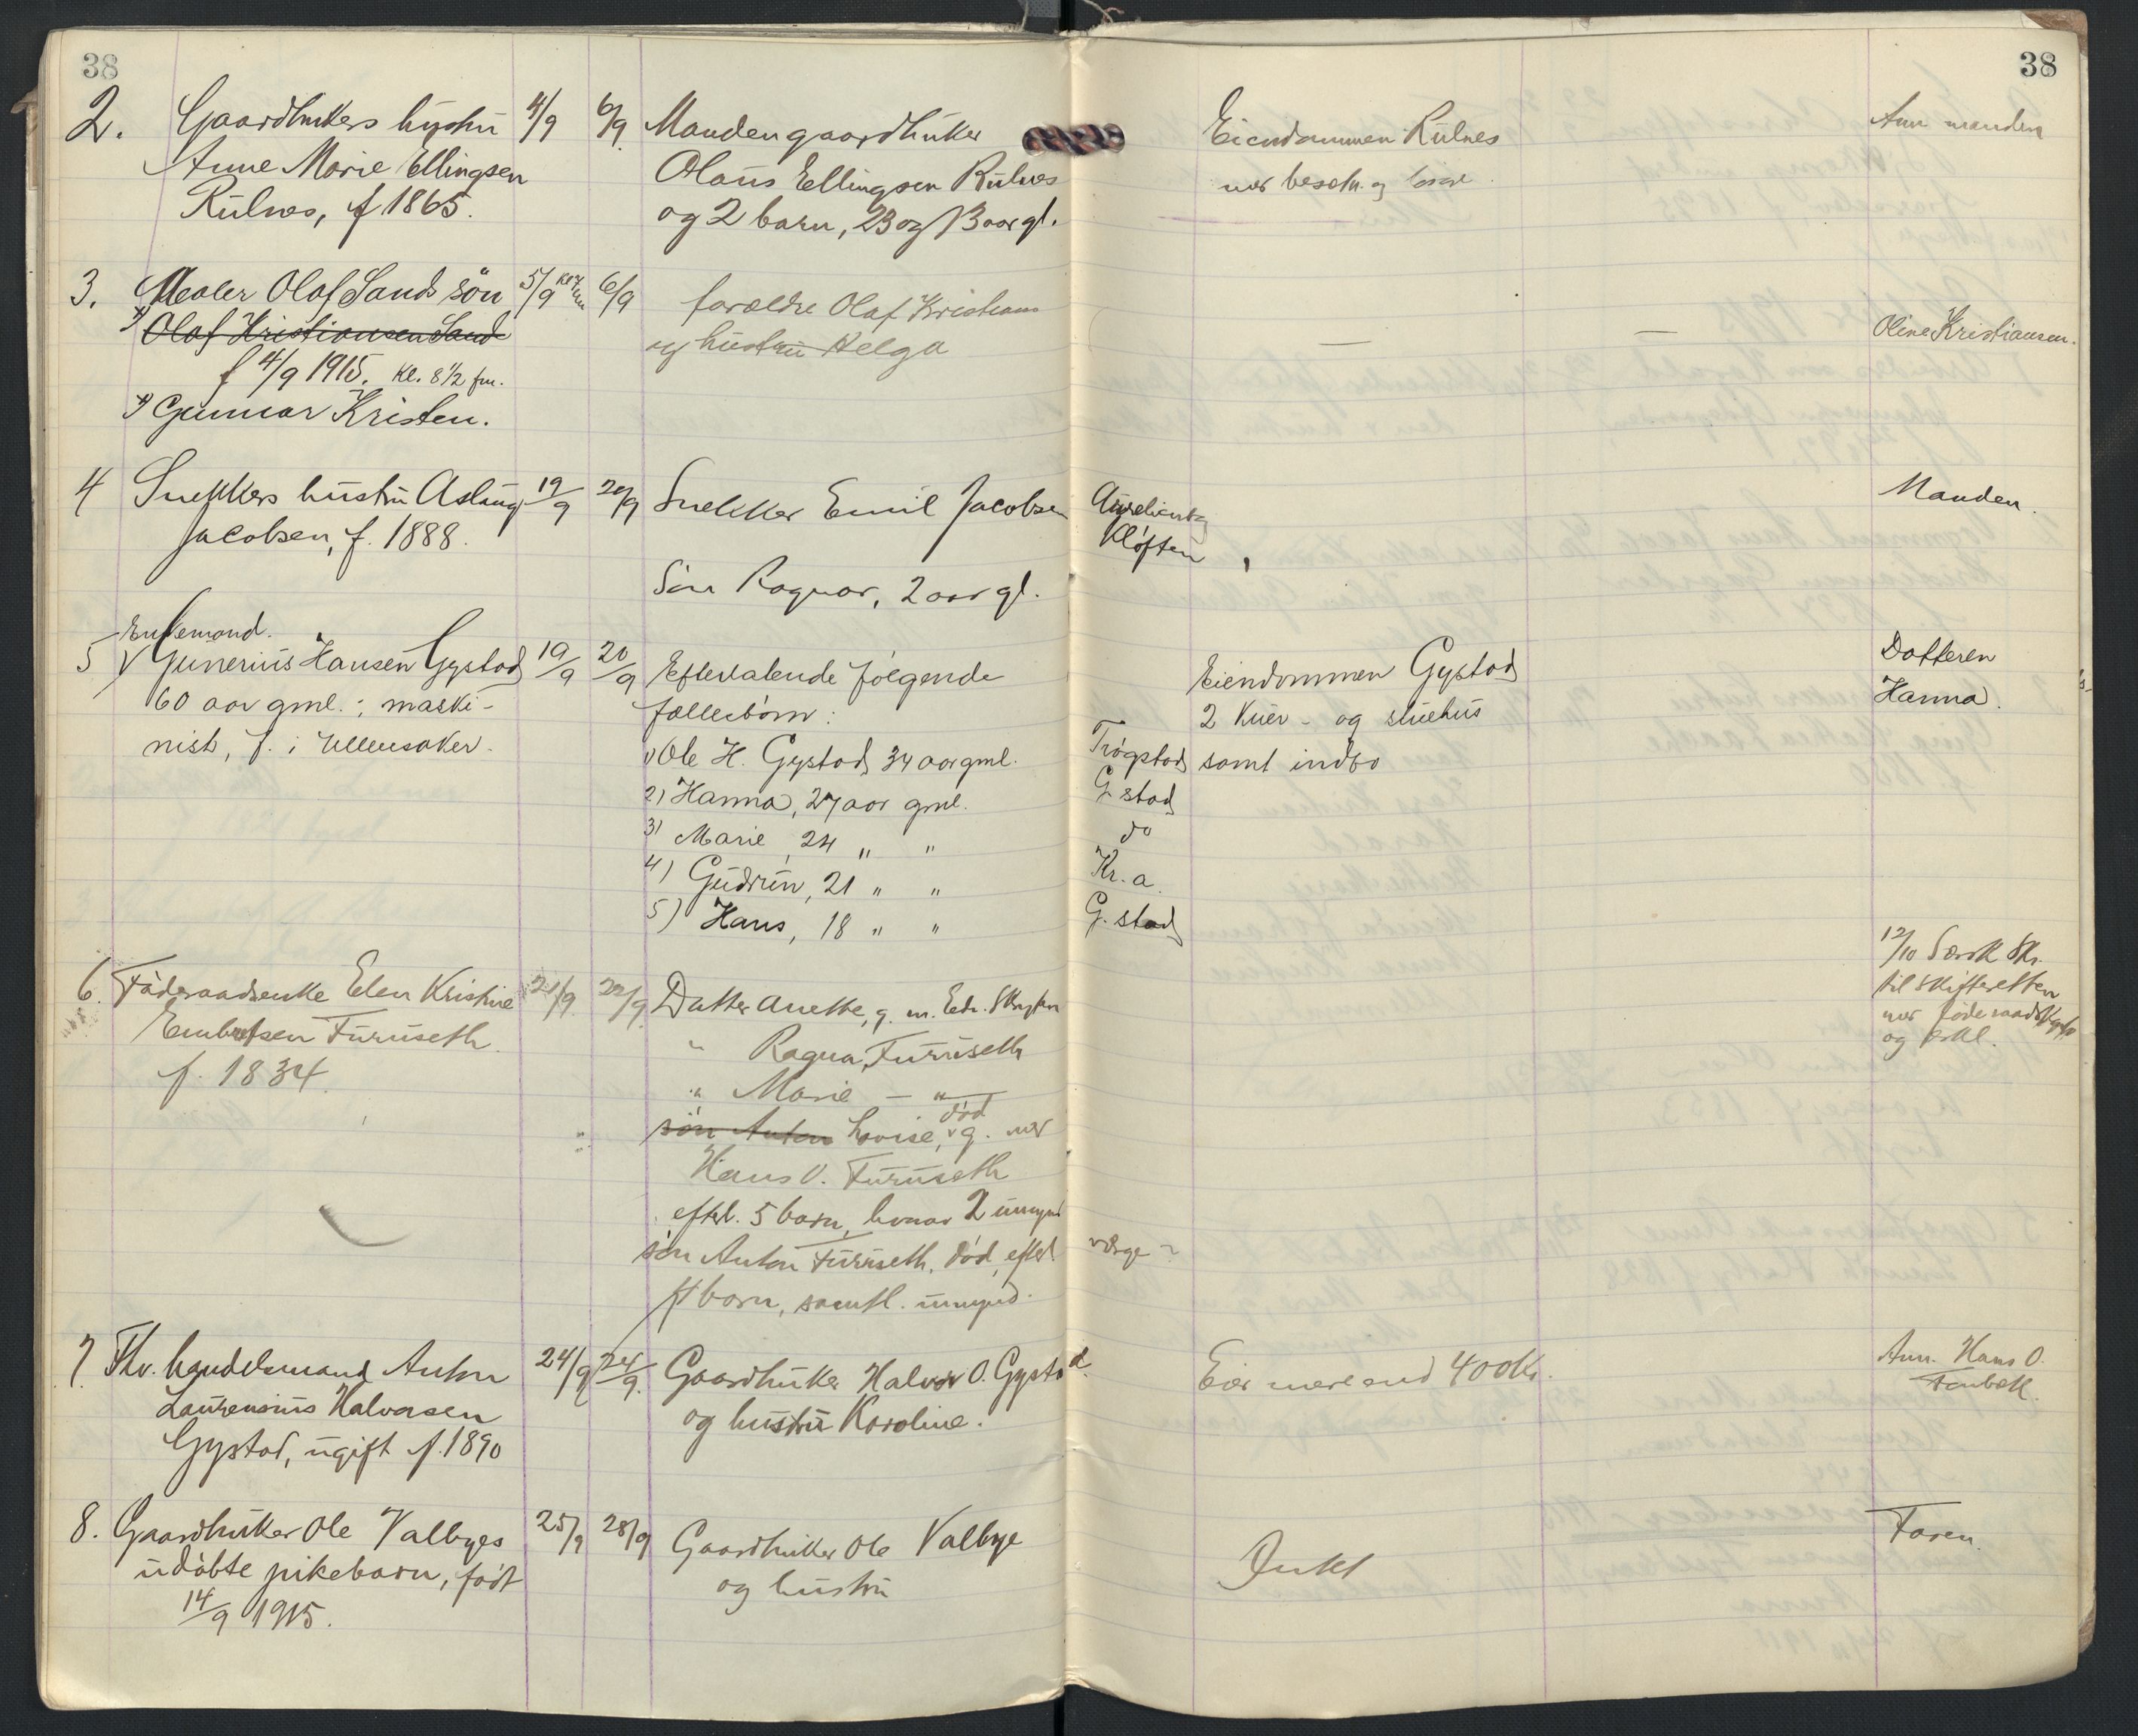 38
38
2. Gaardbrukers hustru 4/9 6/9 Manden gaardbruker Eiendommen Rulnes Anm. manden
Anne Marie Ellingsen Olaus Ellingsen Rulnes med besetn. og løsøre.
Rulnes, f 1865. og 2 barn, 23 og 13 aar gl.
3. Maler Olaf Sands søn 5/9 6/9 forældre Olaf Kristians — — Oline Kristiansen.
Olaf Kristiansen Sand og hustru Helga
f 4/9 1915. Kl. 8 1/2 fm.
Gunnar Kristen.
4 Snekkers hustru Aslaug 19/9 20/9 Snekker Emil Jacobsen Manden.
Jacobsen, f. 1888. Kløften
Søn Ragnar, 2 aar gl.
Enkemand.
5 Gunerius Hansen Gystad 19/9 20/9 Efterlatende følgende Eiendommen Gystad Datteren
60 aar gml.; maski- fællesbørn: 2 kuer - og stuehus Hanna.
nist, f. i Ullensaker. 1) Ole H. Gystad 34 aar gml. Trøgstad samt indbo
2) Hanna, 27 aar gml. G.stad
3) Marie, 24 " " do
4) Gudrun, 21 " " Kr.a.
5) Hans, 18 " " G.stad
6. Føderaadsenke Elen Kristine 21/9 22/9 Datter Anette, g. m. Edv. 12/10 Særsk. Skr.
Embretsen Furuseth " Ragna Furuseth til skifteretten
f. 1834. " Marie — " — med føderaads
søn Anton Lovise, død g. med og erkl.
Hans O. Furuseth
efterl. 5 barn, hvorav 2 umynd
søn Anton Furuseth, død, efterl. værge
4 barn, samtl. umynd.
7. Fhv. handelsmand Anton 24/9 24/9. Gaardbruker Halvor O. Gystad. Eier mere end 400 Kr. Anm. Hans O.
Laurensius Halvorsen og hustru Karoline.
Gystad, ugift f. 1890
8. Gaardbruker Ole Valbyes 25/9 28/9 Gaardbruker Ole Valbye Intet Faren.
udøbte pikebarn, født og hustru
14/9 1915.